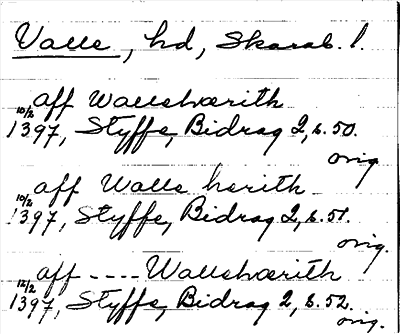 Valle, hd, Skarab. l.
aff Wallshærith
10/2 1397, Styffe, Bidrag 2, s. 50.
orig.
aff Walle herith
10/2 1397, Styffe, Bidrag 2, s. 51.
orig.
aff ---- Wallshærith
12/2 1397, Styffe, Bidrag 2, s. 52.
orig.